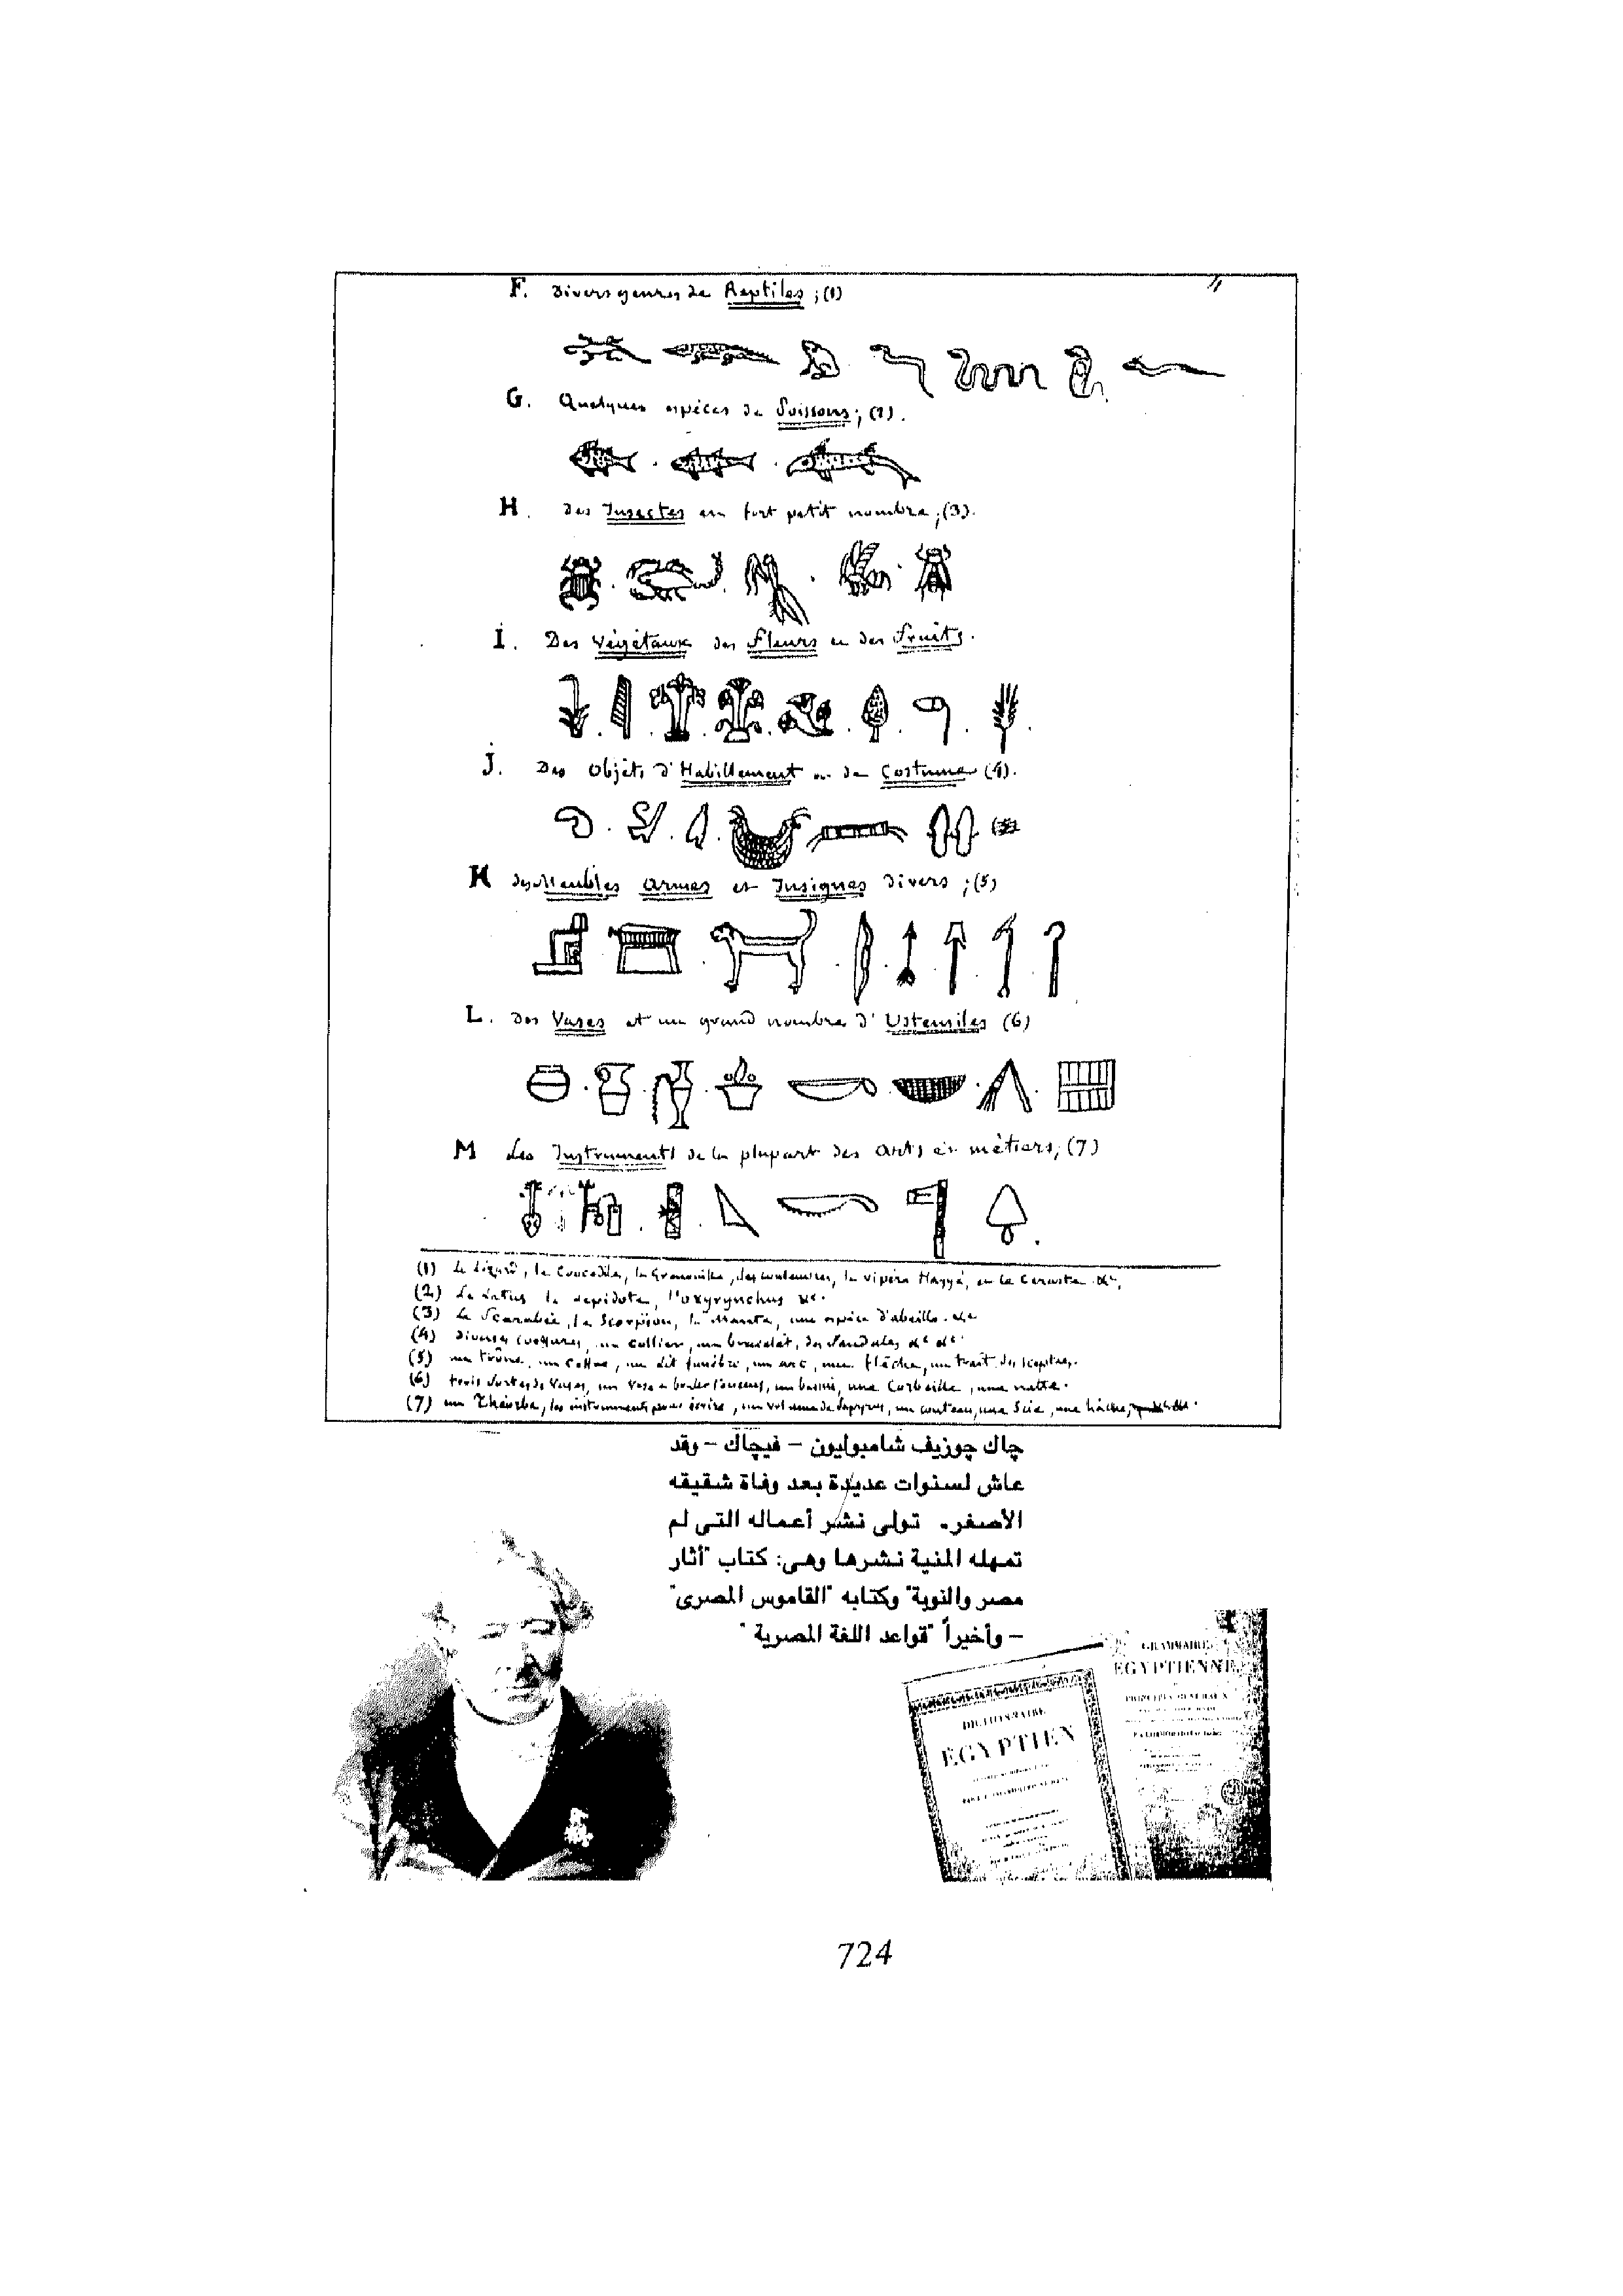 F. Divers genres de Reptiles ; (1)
G. Quelques espèces de Poissons ; (2).
H. Des Insectes en fort petit nombre ; (3).
I. Des Végétaux des Fleurs et des Fruits.
J. Des Objets d'Habillement ou de Costume (4).
K des Meubles Armes et Insignes divers ; (5)
L. Des Vases et un grand nombre d'Ustensiles (6)
M Les Instruments de la plupart des arts et métiers ; (7)
(1) Le Lézard, le Crocodile, la Grenouille, des couleuvres, la vipère Hayyé, et le Ceraste &c,
(2) Le Latus le Lepidote, l'oxyrynchus &c.
(3) Le Scarabée, le Scorpion, la Mante, une espèce d'abeille. &c
(4) Diverses coeffures, un collier, un bracelet, des Sandales &c &c.
(5) un trône, un coffre, un lit funèbre, un arc, une flèche, un trait, des sceptres.
(6) trois sortes de Vases, un Vase à bruler l'encens, un bassin, une Corbeille, une natte.
(7) un Théorbe, les instruments pour écrire, un volume de Papyrus, un couteau, une Scie, une hâche,
چاك چوزيف شامبوليون – فيچاك – وقد
عاش لسنوات عديدة بعد وفاة شقيقه
الأصغر. تولى نشر أعماله التى لم
تمهله المنية نشرها وهى: كتاب "أثار
مصر والنوبة" وكتابه "القاموس المصرى"
– وأخيراً "قواعد اللغة المصرية"
DICTIONNAIRE
EGYPTIEN
GRAMMAIRE
EGYPTIENNE
724